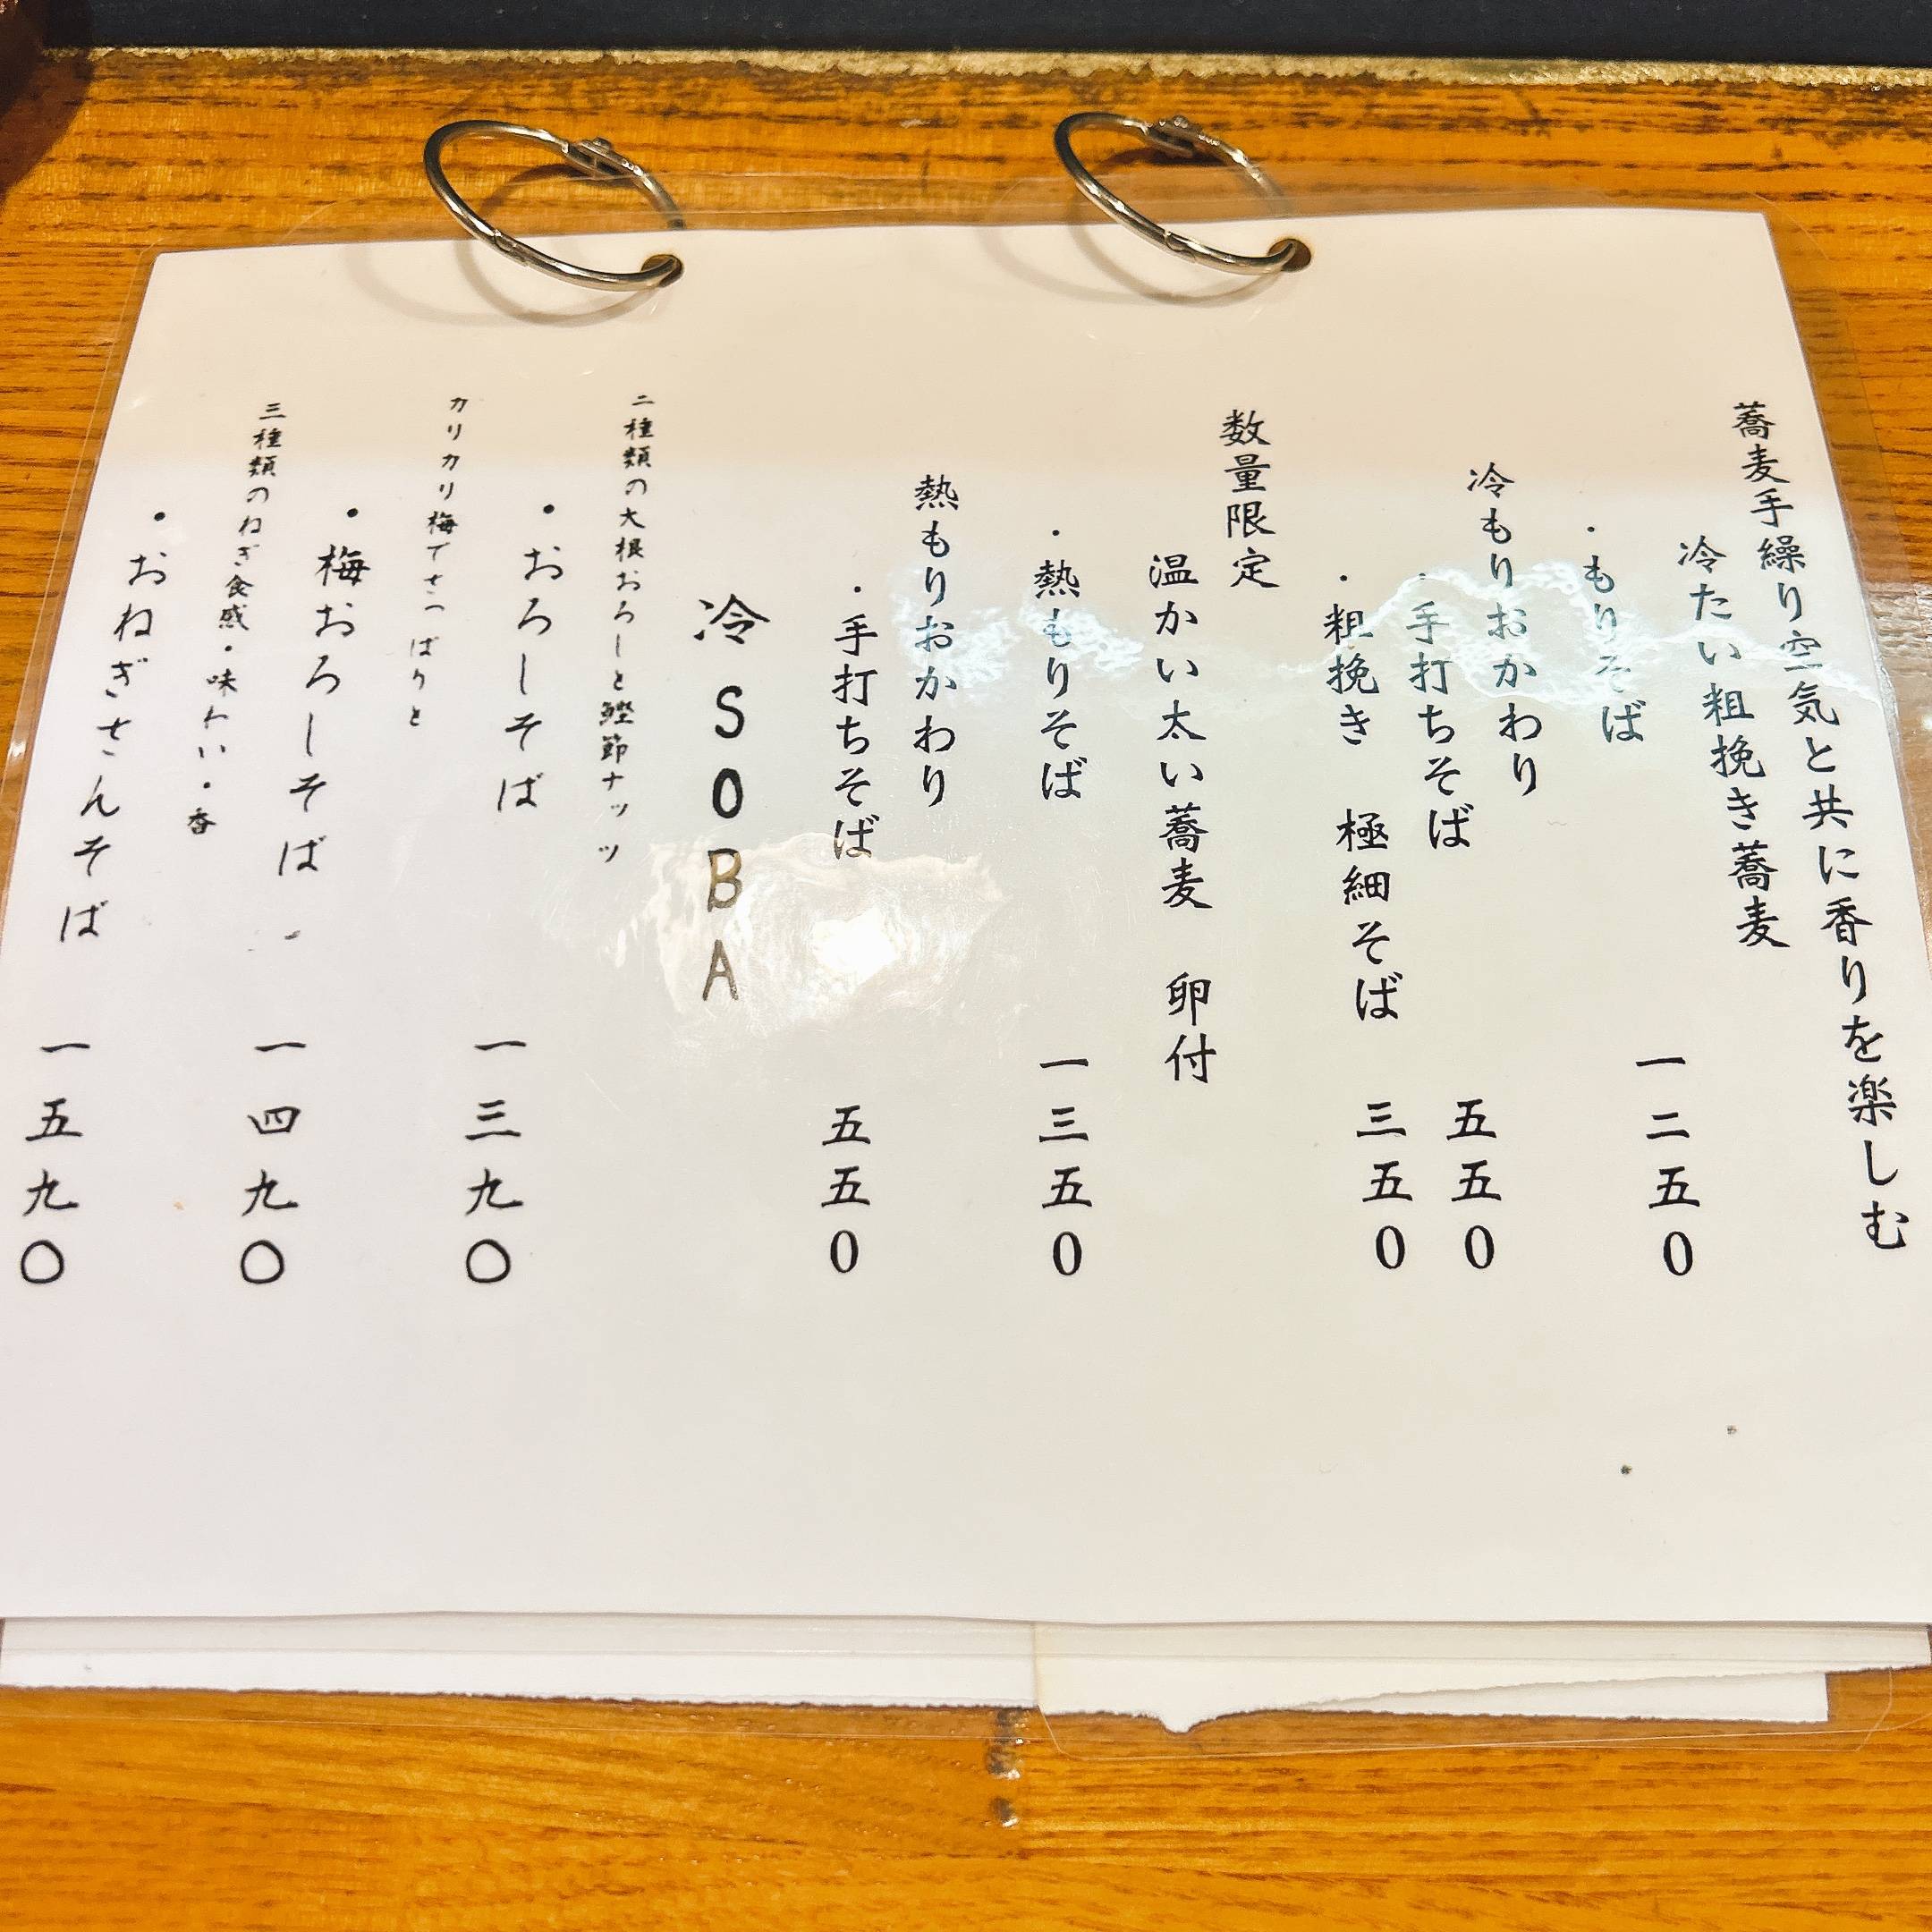 蕎麦手繰り空気と共に香りを楽しむ
冷たい粗挽き蕎麦
・もりそば 一二五0
冷もりおかわり
・手打ちそば 五五0
・粗挽き 極細そば 三五0
数量限定
温かい太い蕎麦 卵付
・熱もりそば 一三五0
熱もりおかわり
・手打ちそば 五五0
冷SOBA
二種類の大根おろしと鰹節ナッツ
・おろしそば 一三九〇
カリカリ梅でさっぱりと
・梅おろしそば 一四九〇
三種類のねぎ食感・味わい・香
・おねぎさんそば 一五九〇